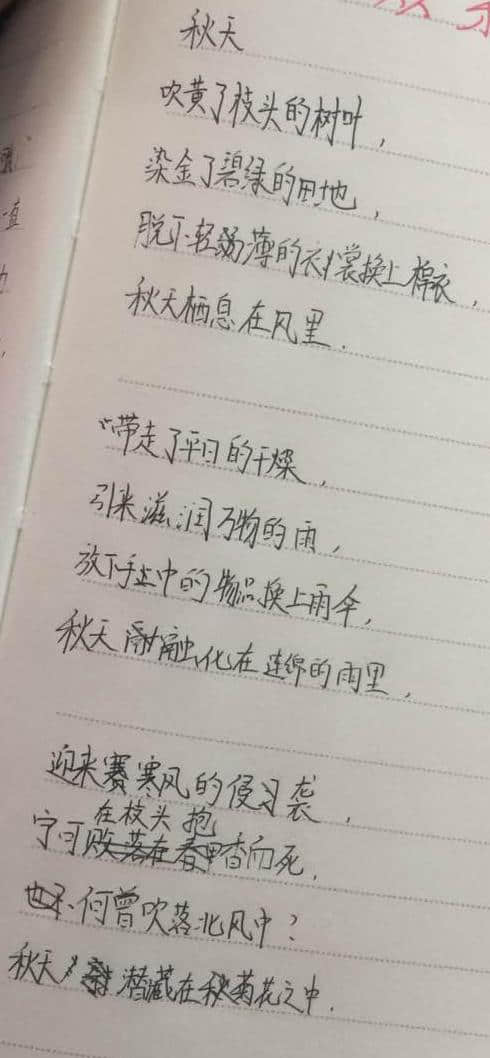 秋天
吹黄了枝头的树叶，
染金了碧绿的田地，
脱下轻薄的衣裳换上棉衣，
秋天栖息在风里．
带走了平日的干燥，
引来滋润万物的雨，
放下手中的物品换上雨伞，
秋天融化在连绵的雨里，
迎来寒风的侵袭，
宁可在枝头抱香而死，
何曾吹落北风中？
秋天潜藏在菊花之中．